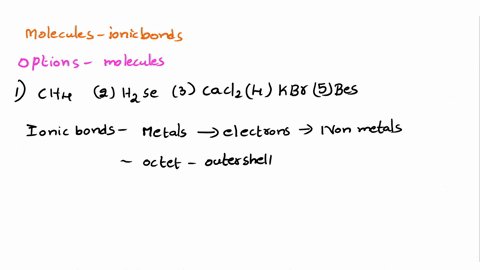 Molecules - ionic bonds
Options - molecules
1) CH4 (2) H2Se (3) CaCl2 (4) KBr (5) Bes
Ionic bonds - Metals → electrons → Non metals
~ octet - outershell